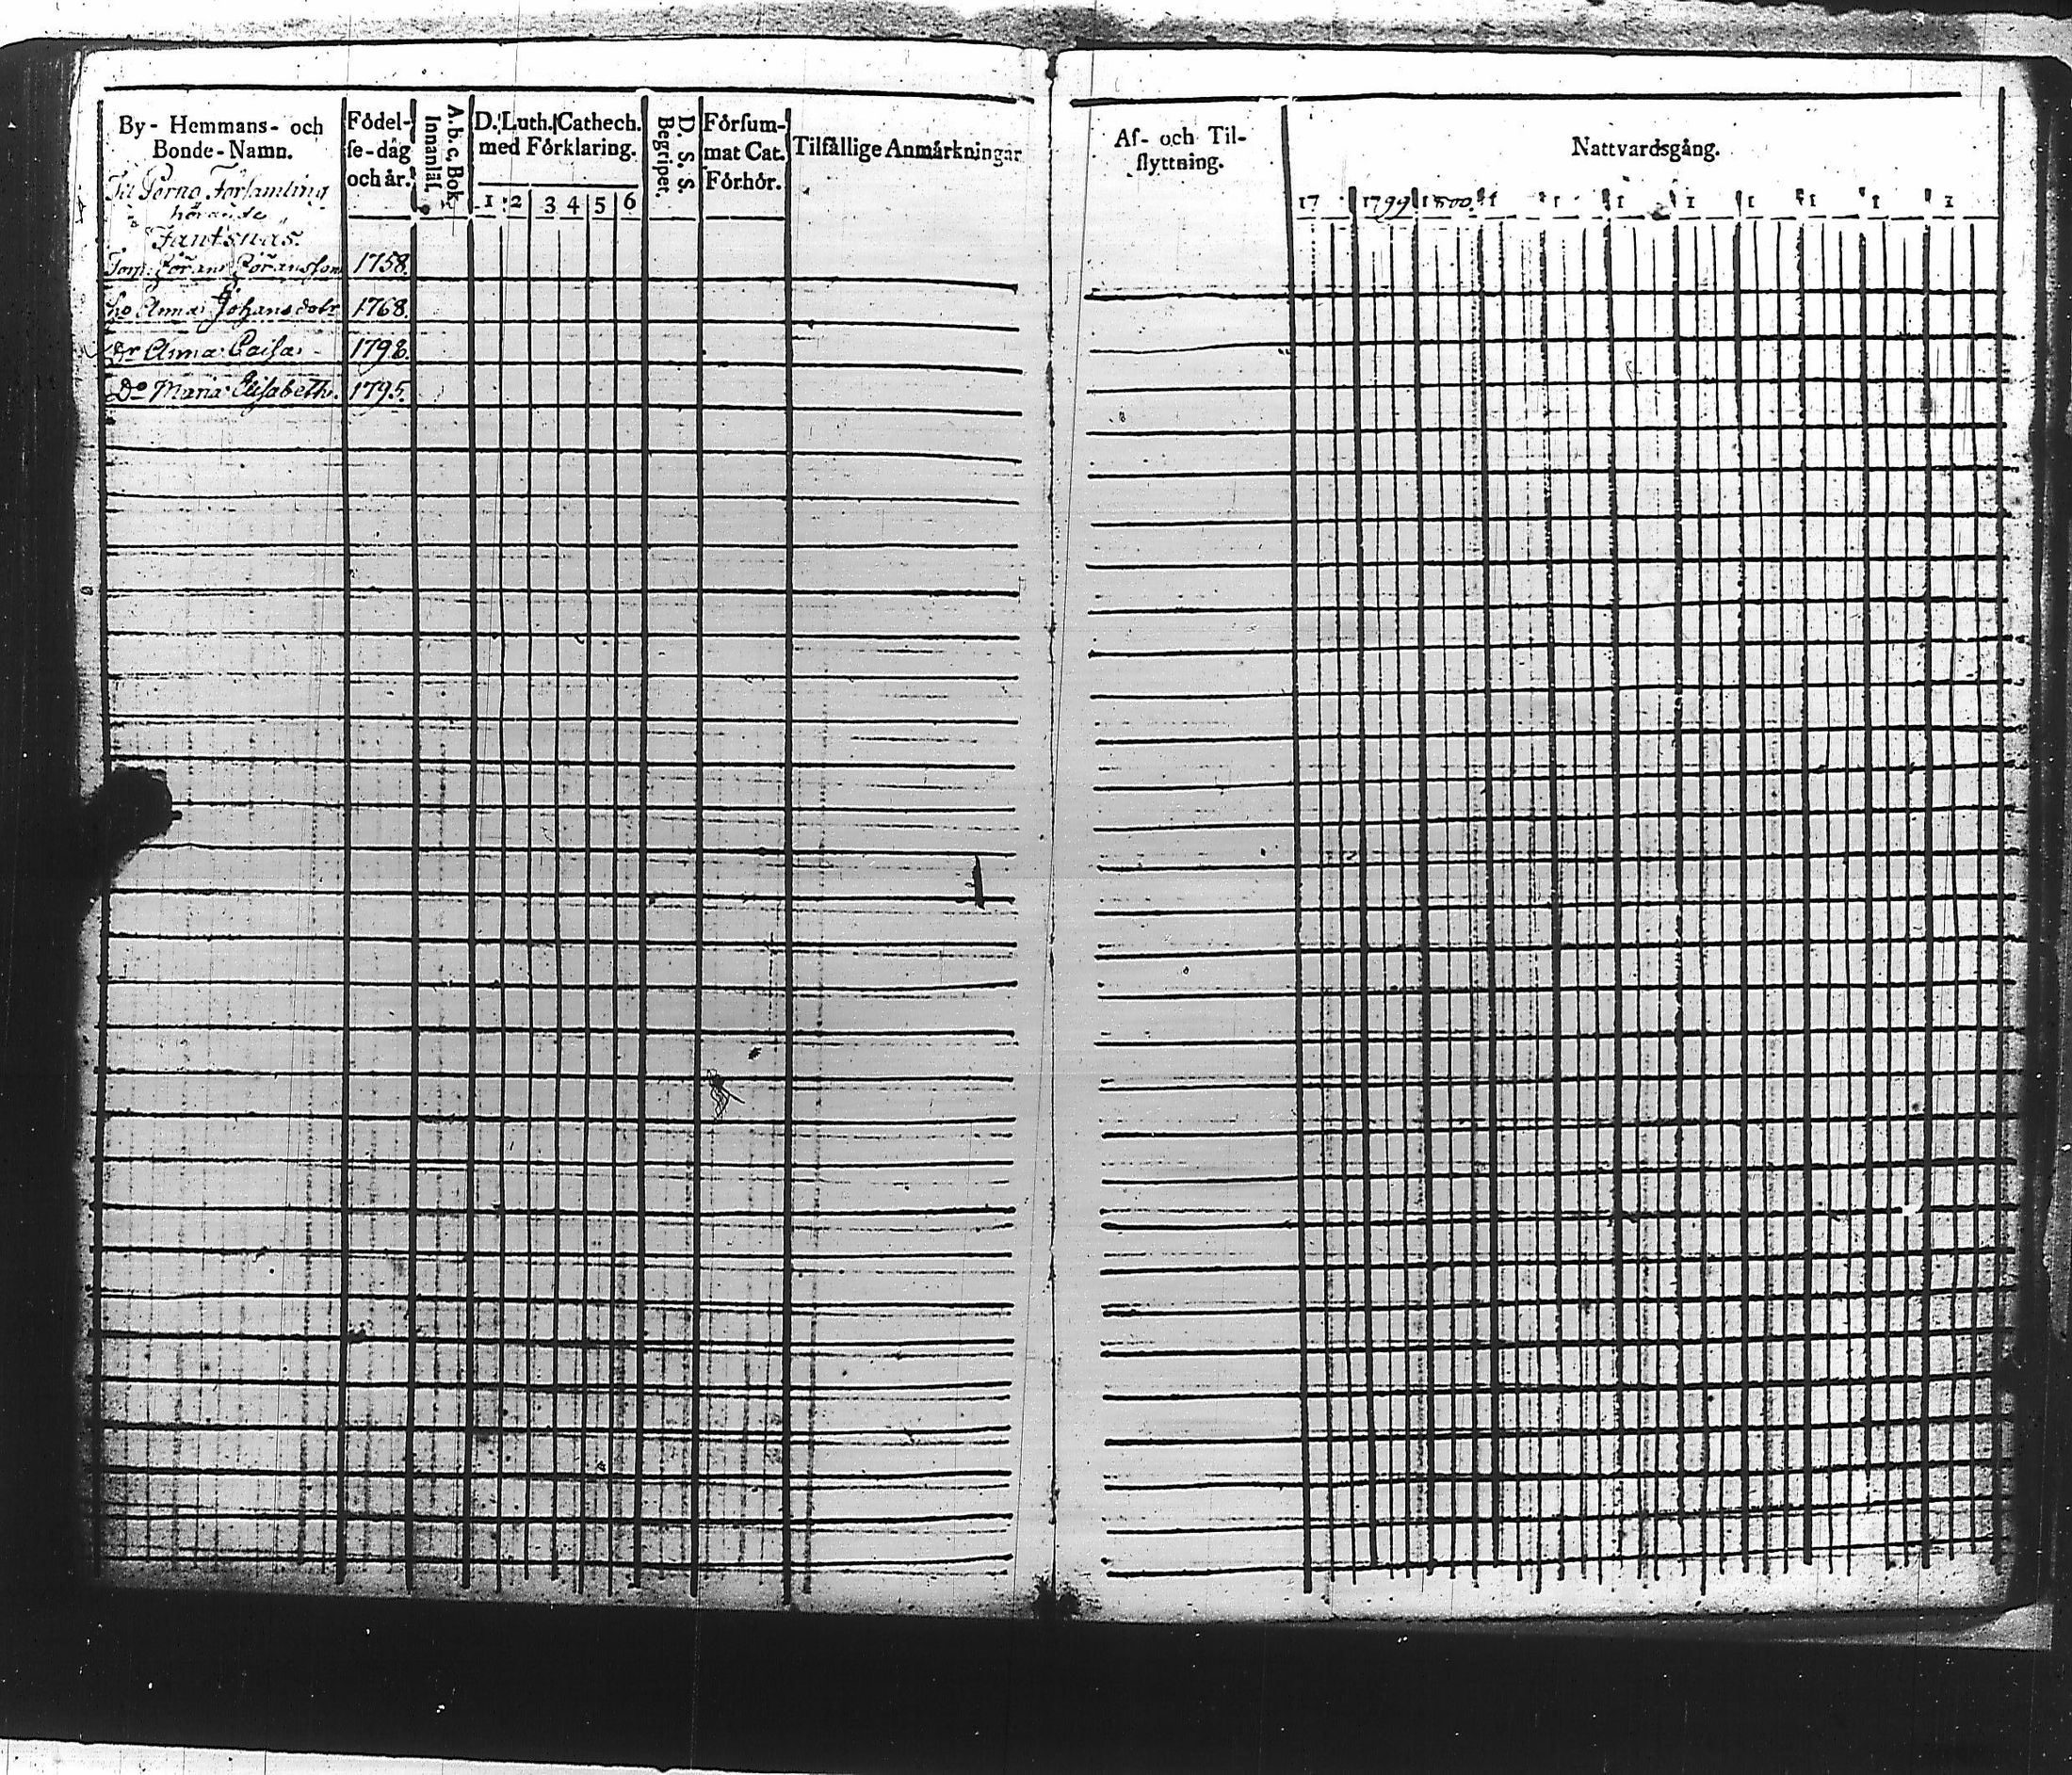 By- Hemmans- och
Bonde-Namn.
Födel-
se-dag
och år.
A. b. c. Bok.
Innanläs.
D. Luth. Cathech.
med Förklaring.
1 2 3 4 5 6
D. S. S.
Begripet.
Försum-
mat Cat.
Förhör.
Tilfällige Anmärkningar
Til Perno Församling
hörande
Torp. Göran Göransson 1758.
ho Anna Johansdotr 1768.
Dr Anna Caisa 1798.
Do Maria Elisabeth. 1795.
Af- och Til-
flyttning.
Nattvardsgång.
17 1799 1800. 1 1 1 1 1 1 1 1